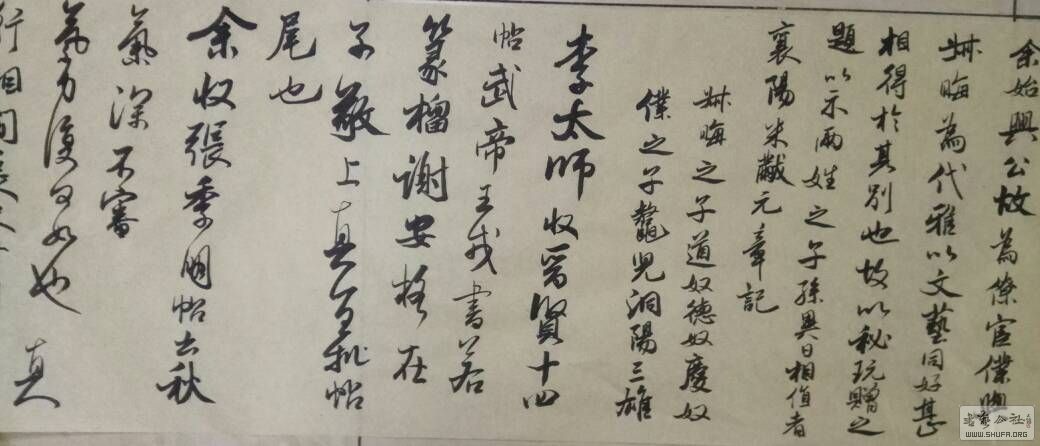 余始興公故為僚宦僕與
叔晦為代雅以文藝同好甚
相得於其別也故以秘玩贈之
題以示兩姓之子孫異日相值者
襄陽米黻元章記
叔晦之子道奴德奴慶奴
僕之子鼇兒洞陽三雄
李太師收晉賢十四
帖武帝王戎書若
篆籀謝安格在
子敬上真宜批帖
尾也
余收張季明帖云秋
氣深不審
氣力復何如也真
行相間長
WWW.SHUFA.ORG